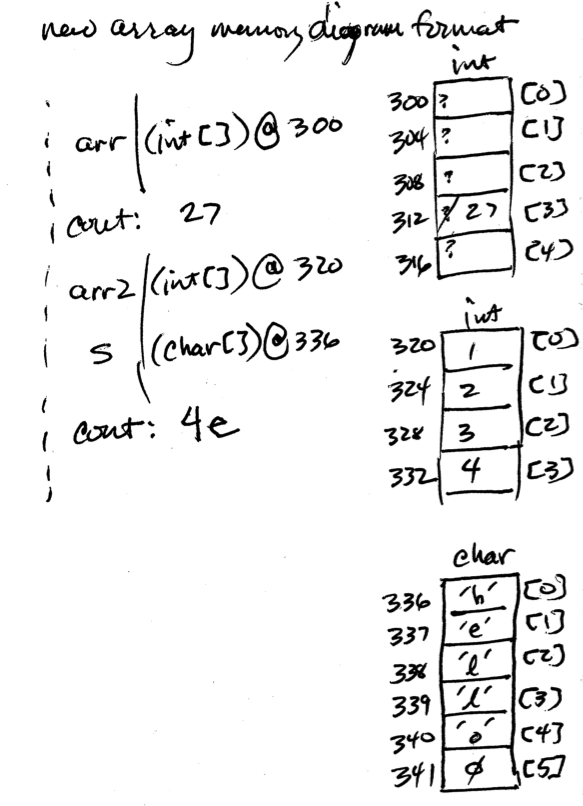 new array memory diagram format
int
arr (int[])@ 300
300 ? [0]
304 ? [1]
308 ? [2]
312 ? 27 [3]
316 ? [4]
cout: 27
arr2 (int[])@ 320
s (char[])@ 336
cout: 4e
int
320 1 [0]
324 2 [1]
328 3 [2]
332 4 [3]
char
336 'h' [0]
337 'e' [1]
338 'l' [2]
339 'l' [3]
340 'o' [4]
341 ∅ [5]